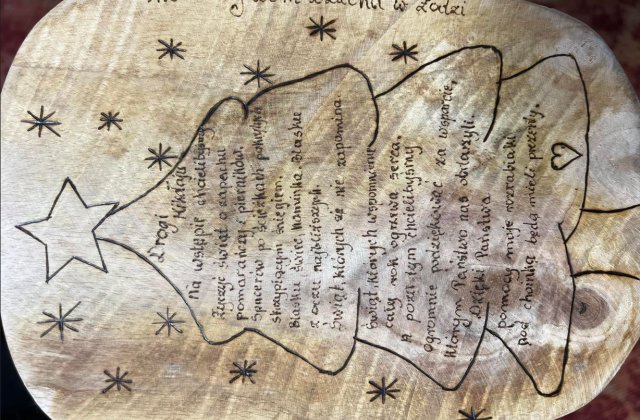 w Łodzi
Drogi
Mikołaju
na wstępie chcielibyśmy
życzyć świąt o zapachu
pomarańczy i pierników.
Spacerów po ścieżkach pokrytych
skrzypiącym śniegiem.
Blasku świec kominka blasku
z oczu najbliższych.
Świąt, których się nie zapomina
Świąt których wspomnienie
cały rok ogrzewa serca.
A poza tym chcielibyśmy
ogromnie podziękować za wsparcie,
którym Państwo nas obdarzyli.
Dzięki Państwa
pomocy moje wzrastniaki
pod choinką będą mieli prezenty.